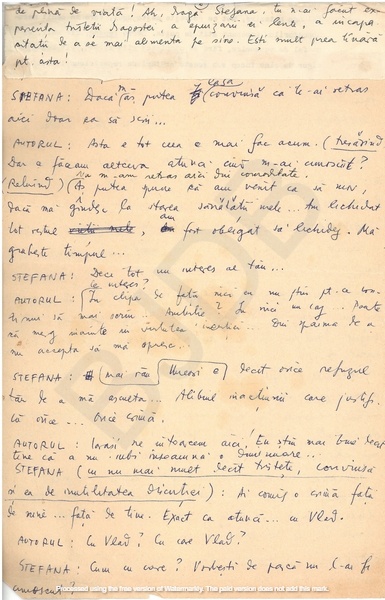 de plină de viață! Ah, dragă Ștefana, tu n-ai făcut ex-
periența tristeții dragostei, a epuizării ei lente, a incapa-
cității de a se mai alimenta pe sine. Ești mult prea tînără
pt. asta!
ȘTEFANA: Dacă m-ăs putea convinsă că te-ai retras
aici doar ca să scrii...
AUTORUL: Asta e tot ceea ce mai fac acum. (tresărind
Dar ce făceam altceva atunci cînd m-ai cunoscut?
(Reluînd) Nu m-am retras aici din comoditate.
Aș putea spune că am venit ca să mor,
dacă mă gîndesc la starea sănătății mele... Am lichidat
tot restul am fost obligat să lichidez. Mă
grăbește timpul...
ȘTEFANA: Deci tot un interes al tău...
AUTORUL: Ce interes? În clipa de față nici eu nu știu pt. ce con-
tinui să mai scriu. Ambiție? În nici un caz. Poate
că merg înainte în virtutea inerției... Din spaima de a
nu accepta să mă opresc...
ȘTEFANA: mai rău Uneori e decît orice refuzul
tău de a mă asculta... Alibiul inacțiunii care justifi-
că orice... Orice crimă.
AUTORUL: Iarăși ne întoarcem aici! Eu știu mai bine decît
tine că a nu iubi înseamnă o diminuare...
ȘTEFANA (cu nu mai mult decît tristețe, convinsă
și ea de inutilitatea discuției): Ai comis o crimă față
de mine... față de tine. Exact ca atunci... cu Vlad.
AUTORUL: Cu Vlad? Cu care Vlad?
ȘTEFANA: Cum cu care? Vorbești de parcă nu l-ai fi
cunoscut?
Processed using the free version of Watermarkly. The paid version does not add this mark.